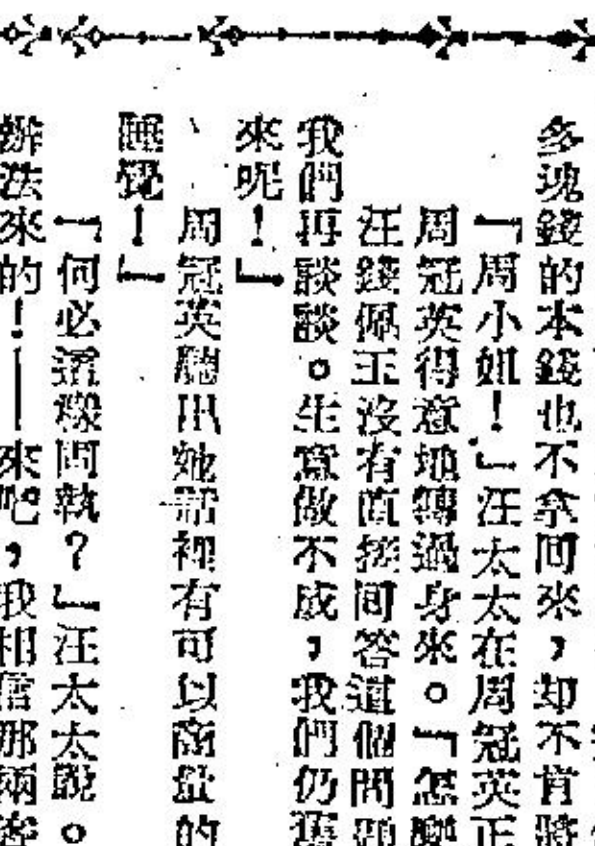 多塊錢的本錢也不拿回來，却不肯將
『周小姐！』汪太太在周冠英正
周冠英得意地轉過身來。『怎麼
汪錢佩玉沒有直接回答道個問題
我們再談談。生意做不成，我們仍舊
來呢！』
周冠英聽出她話裡有可以商量的
睡覺！』
『何必這樣固執？』汪太太說。
辦法來的！——來吧，我相信那兩客